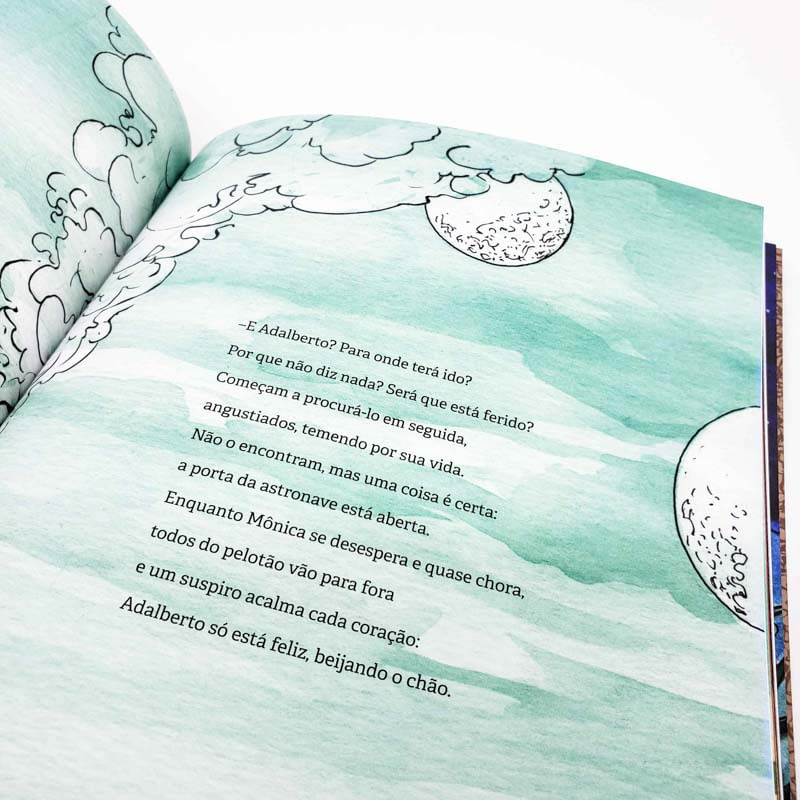 –E Adalberto? Para onde terá ido?
Por que não diz nada? Será que está ferido?
Começam a procurá-lo em seguida,
angustiados, temendo por sua vida.
Não o encontram, mas uma coisa é certa:
a porta da astronave está aberta.
Enquanto Mônica se desespera e quase chora,
todos do pelotão vão para fora
e um suspiro acalma cada coração:
Adalberto só está feliz, beijando o chão.